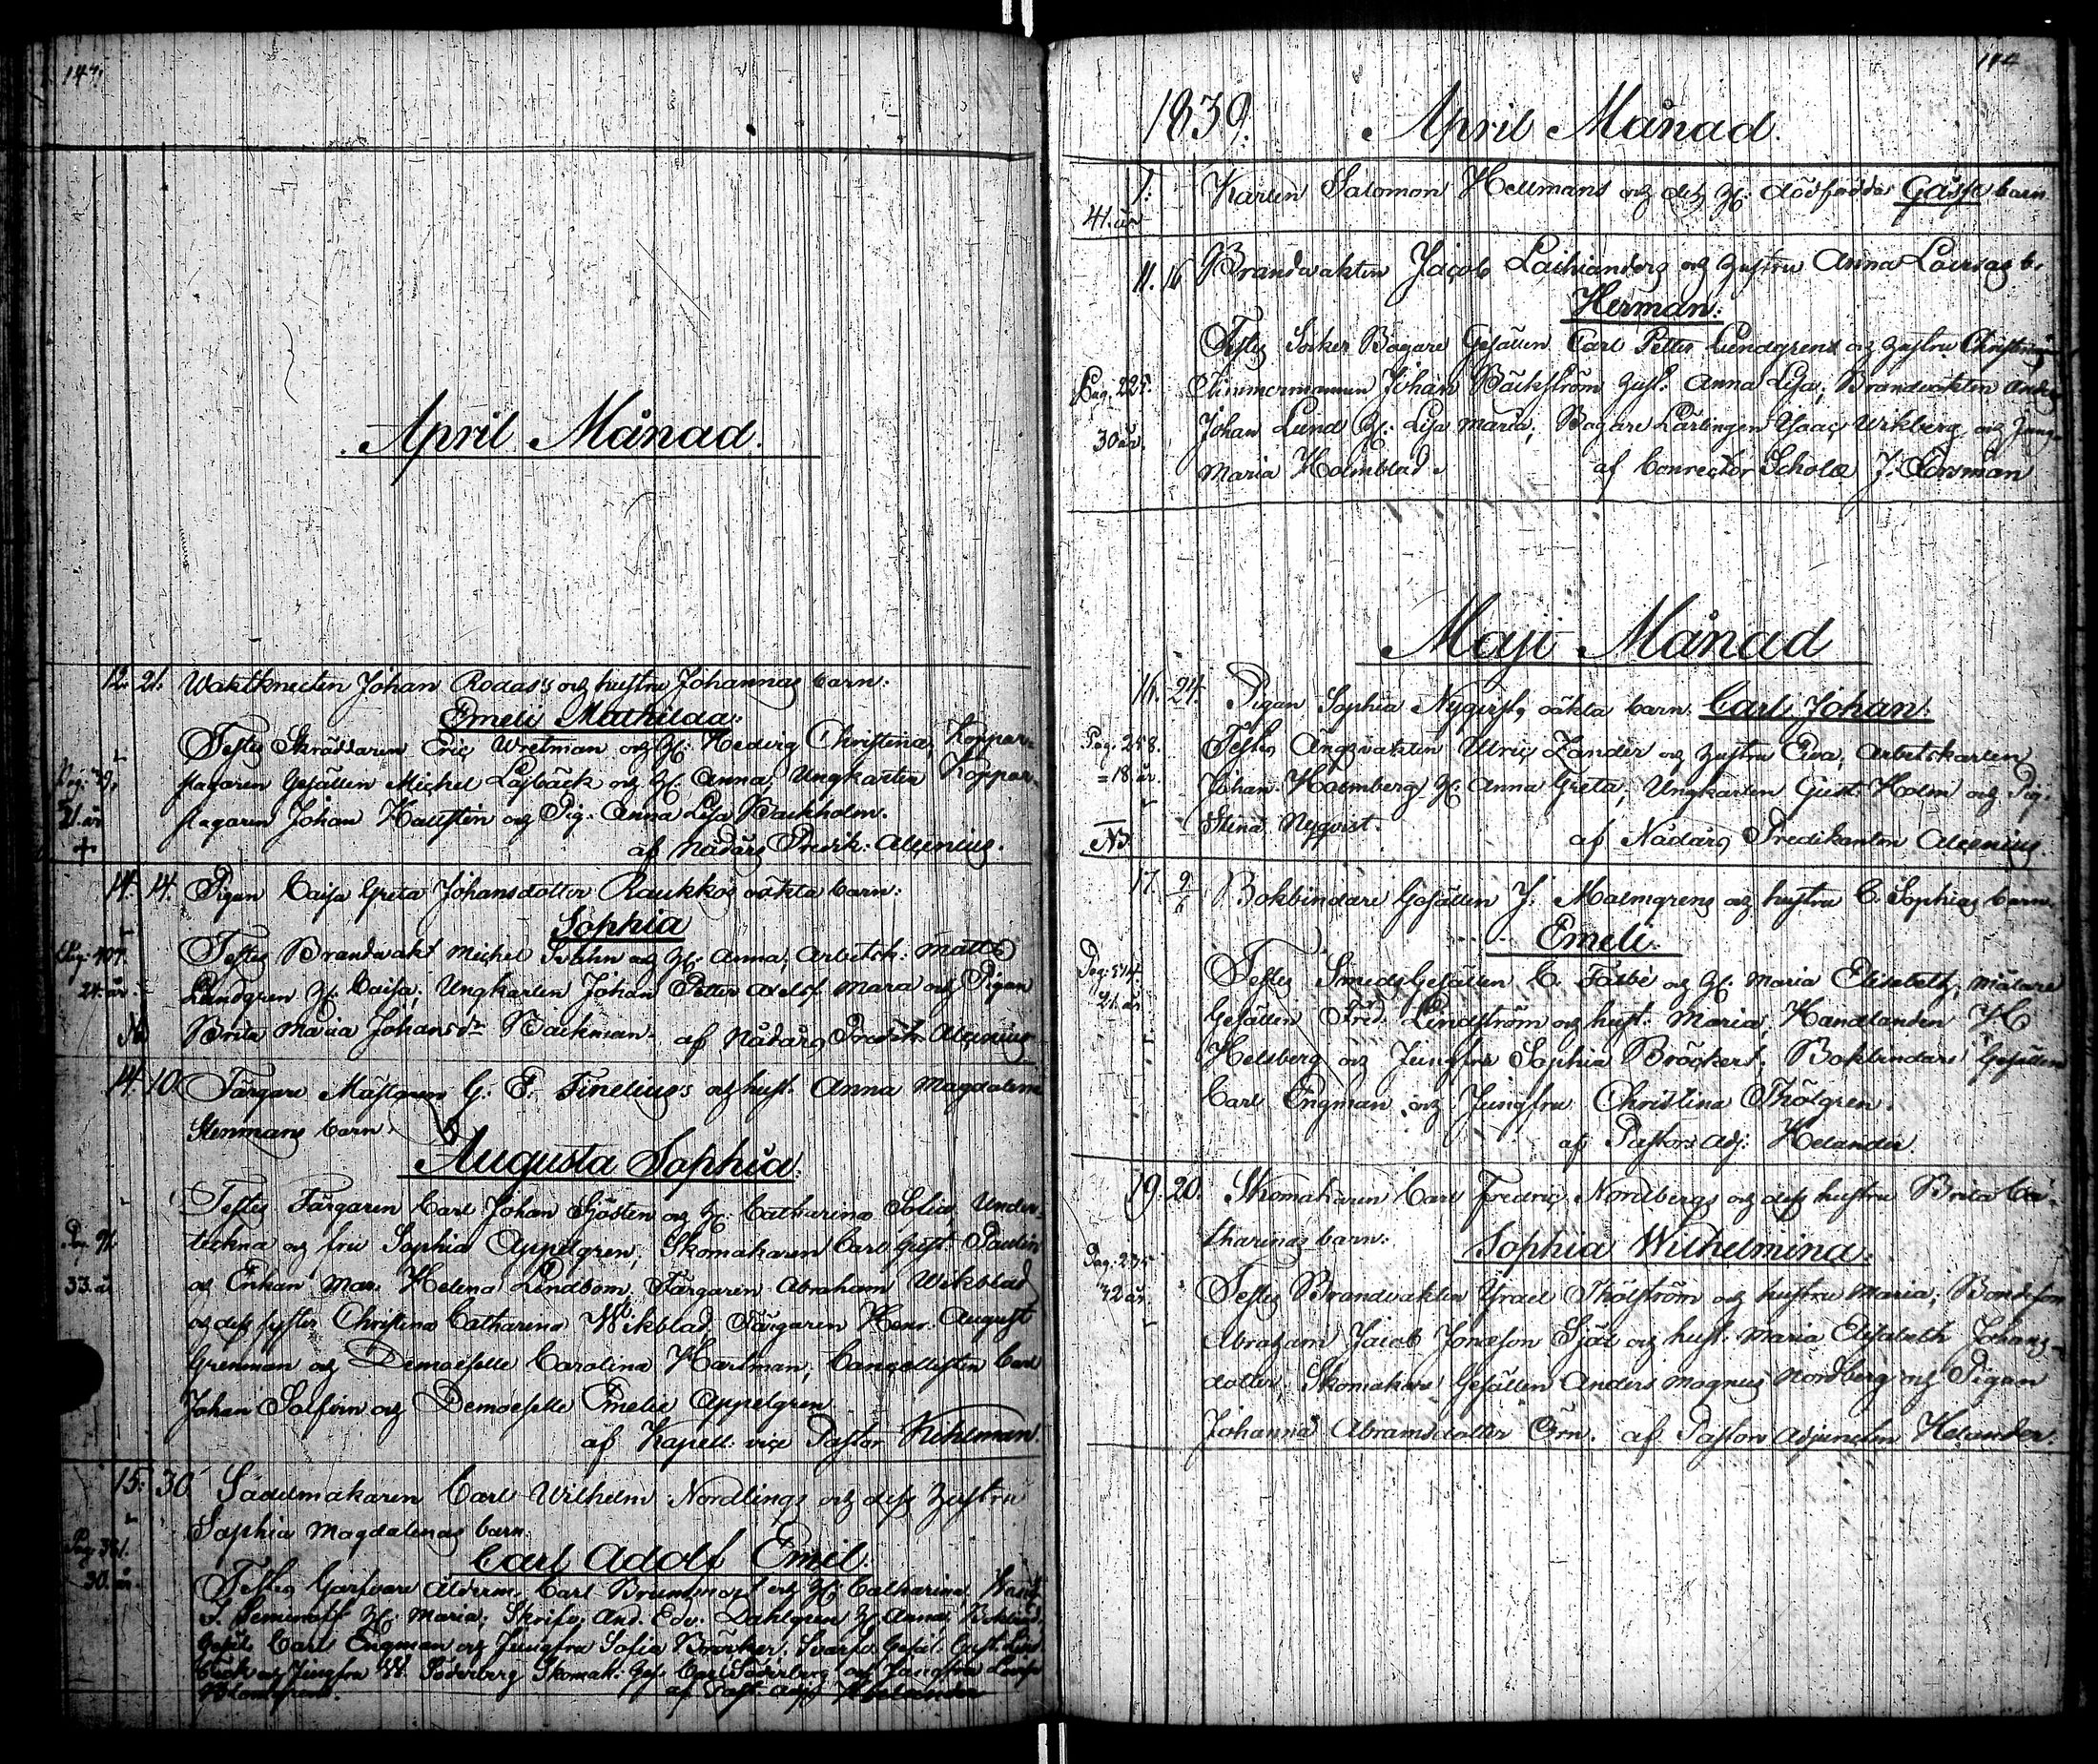 April Månad.
12. 21. Waktknecten Johan Rodas's och hustru Johannas barn:
Emeli Mathilda:
Testes Skräddaren Eric Wretman och H: Hedvig Christina, Koppar-
Pag: 39, slagaren Gesällen Michel Låsbäck och H: Anna, Ungkarlen Koppar-
21. år slagaren Johan Hallstén och Pig. Anna Lisa Backholm.
+ af Nådårs Predik: Alcenius.
14. 14. Pigan Caisa Greta Johansdotter Raukkos oäkta barn:
Sophia
Testes Brandvakt Michel Svahn och H: Anna, Arbetsk: Matts
24. år. Lundgren H: Caisa; Ungkarlen Johan Petter Adolf Mara och Pigan
Brita Maria Johansdr Backman. af Nådårs Predik Alcenius
14. 10. Färgare Mästaren G. E. Finelius's och hust. Anna Magdalena
Stenmans barn.
Augusta Sophia.
Testes Färgaren Carl Johan Sjösten och H: Catharina Sofia, Under-
Pag. 91 teckna och fru Sophia Appelgren; Skomakaren Carl Gust. Paulin
33. år och Enkan Mar. Helena Lindbom, Färgaren Abraham Wikblad
och dess syster Christina Catharina Wikblad, Färgaren Henr. August
Grenman och Demoiselle Carolina Hartman; Cancellisten Carl
Johan Solfvin och Demoiselle Emelie Appelgren
af Kapell: vice Pastor Kihlman.
15. 30 Sadelmakaren Carl Wilhelm Nordlings och dess hustru
Sophia Magdalenas barn.
Carl Adolf Emil.
30. år. Testes Garfvare Ålderm. Carl och H: Catharina,
H: Maria; Skrifv. And. Edv. Dahlgren H. Anna,
Gesäl. Carl Engman och Jungfru Sofia Bröcker, Svarfv. Gesäl. Gust.
och Jungfru W. Söderberg Skomak. Ges. Carl Söderberg och Jungfru Lovisa
Blomqvist. af Past. Adj. Helander
1839. April Månad.
1. Karlen Salomon Hellmans och dess H: dödfödde Gosse barn.
41. år
11. 16 Brandvakten Jacob Laihianders och hustru Anna Lovisas b.
Herman:
Testes Socker Bagare Gesällen Carl Petter Lundgren och hustru Christina
Pag. 225. Timmermannen Johan Bäckström hust. Anna Lisa; Brandvakten Anders
30 år. Johan Lund H: Lisa Maria; Bagare Lärlingen Isaac Wikberg och Jung.
Maria Holmblad. af Conrector Scholæ J. Corsman
Maji Månad
16. 24. Pigan Sophia Nyqvists oäkta barn. Carl Johan.
Pag. 258. Testes Ångvakten Ulric Zander och hustru Eva, Arbetskarlen
= 18 år. Johan Holmberg H. Anna Greta, Ungkarlen Gust. Holm och Pig.
Stina Nyqvist.
N3. af Nådårs Predikanten Alcenius
17. 9/6 Bokbindare Gesällen J. Malmgrens och hustru C. Sophias barn.
Emeli.
Testes Smeds Gesällen C. Falbe och H: Maria Elisabeth; Målare
21 år Gesällen Fred. Lindström och hust. Maria; Handlanden
Helsberg och Jungfru Sophia Bröckert; Bokbindare Gesällen
Carl Engman och Jungfru Christina Thölgren.
af Pastors Adj: Helander.
19. 20. Skomakaren Carl Fredric Nordbergs och dess hustru Brita Ca-
tharinas barn: Sophia Wilhelmina.
Pag. 235
32 år. Testes Brandvakten Israel Thölström och hustru Maria, Bondeson
Abraham Jacob Jonæson Sjöl och hust. Maria Elisabeth Johans-
dotter, Skomakare Gesällen Anders Magnus Nordberg och Pigan
Johanna Abramsdotter Örn. af Pastors Adjuncten Helander.